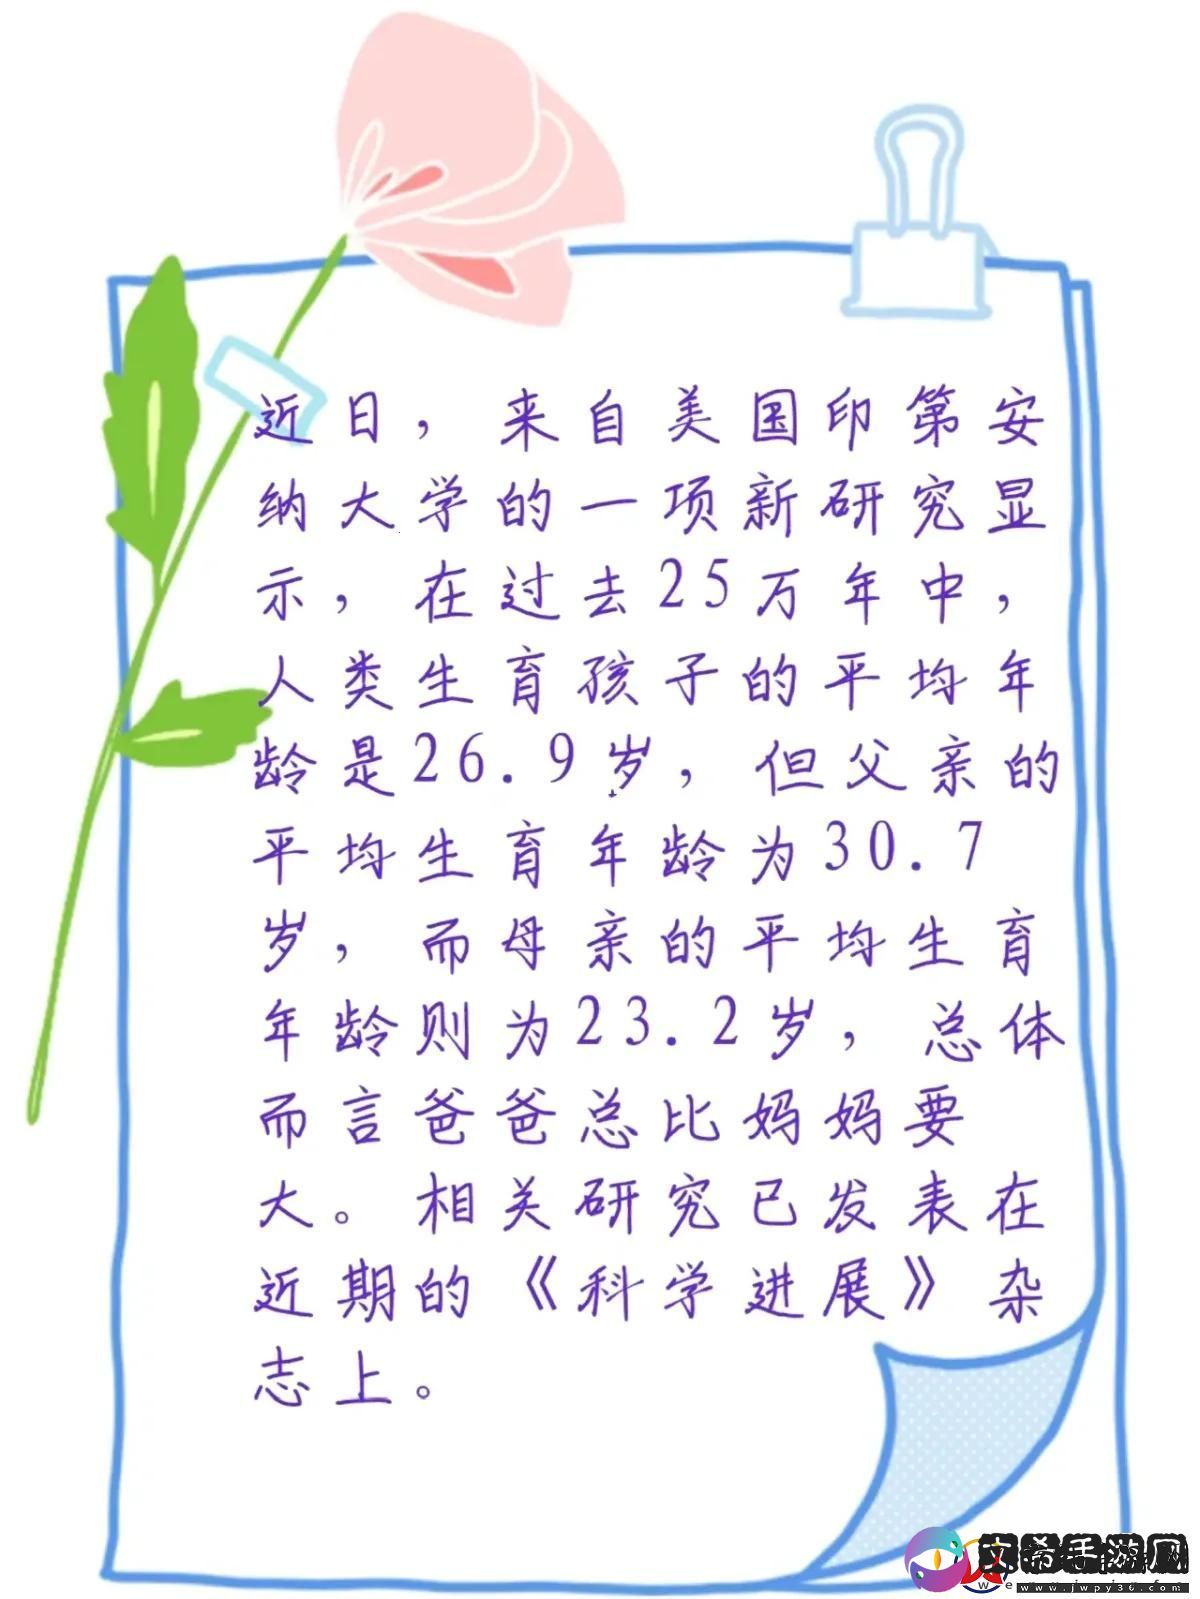 近日，来自美国印第安
纳大学的一项新研究显
示，在过去25万年中，
人类生育孩子的平均年
龄是26.9岁，但父亲的
平均生育年龄为30.7
岁，而母亲的平均生育
年龄则为23.2岁，总体
而言爸爸总比妈妈要
大。相关研究已发表在
近期的《科学进展》杂
志上。
文希手游网
www.jwpy36.com